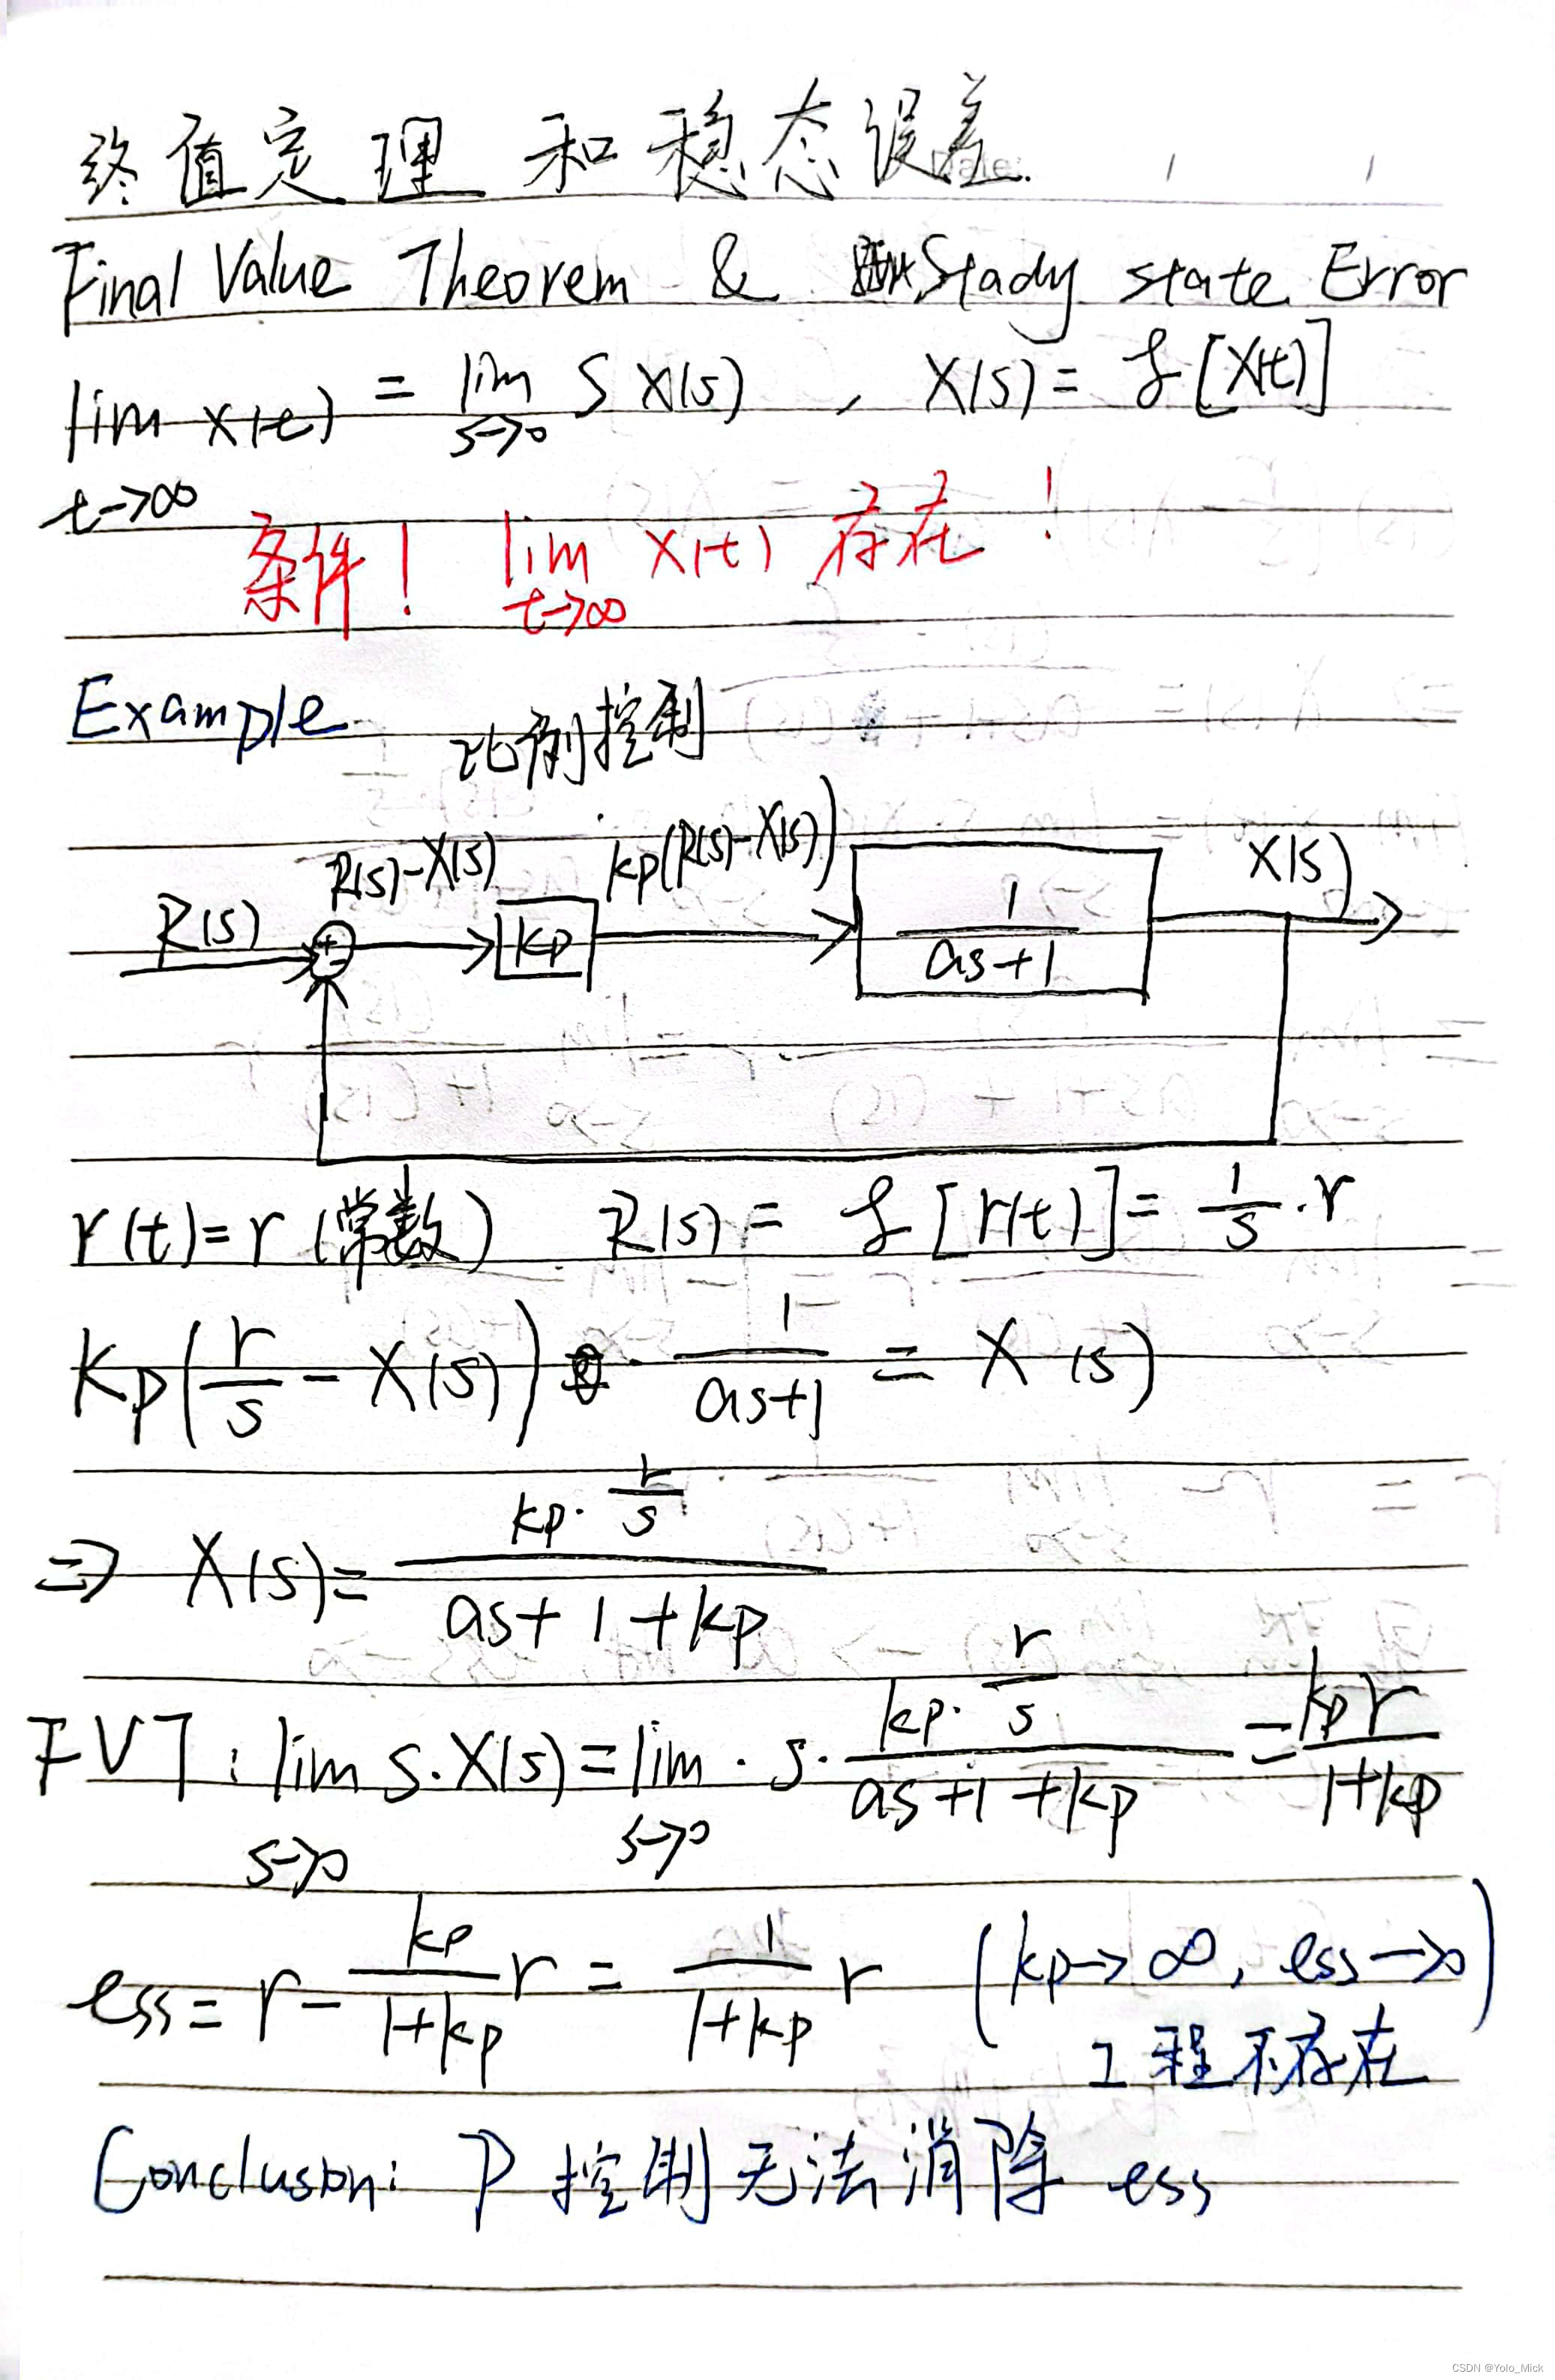 终值定理 和 稳态误差
Date:
Final Value Theorem & Stady state Error
lim x(t) = lim S X(s) , X(s) = ℒ[X(t)]
t→∞ s→0
条件! lim X(t) 存在!
t→∞
Example 比例控制
R(s) R(s)-X(s) kp kp(R(s)-X(s)) 1/(as+1) X(s)
+
-
r(t)=r (常数) R(s) = ℒ[r(t)] = 1/s · r
Kp(r/s - X(s)) · 1/(as+1) = X(s)
⇒ X(s) = (kp · r/s)/(as+1+kp)
FVT: lim s·X(s) = lim · s · (kp · r/s)/(as+1+kp) = kp r/(1+kp)
s→0 s→0
ess = r - kp/(1+kp) r = 1/(1+kp) r (kp→∞, ess→0)
工程不存在
Conclusion: P 控制无法消除 ess
CSDN @Yolo_Mick